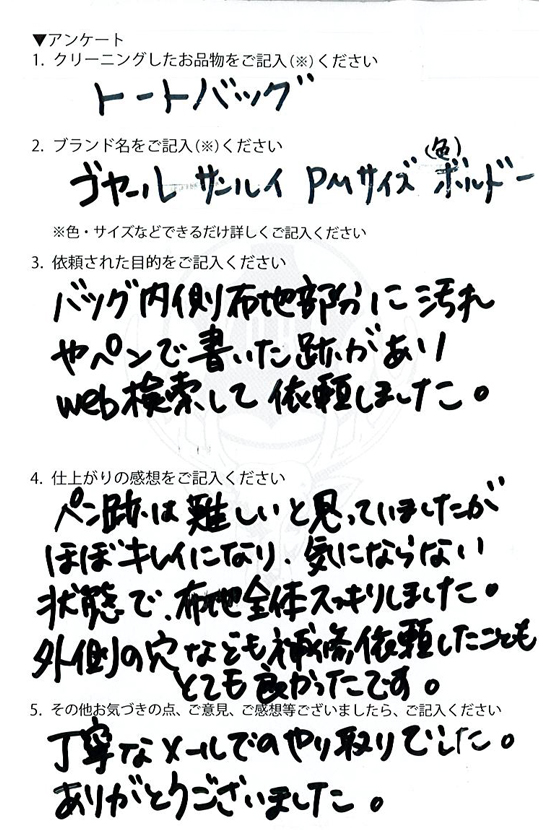 ▼アンケート
1. クリーニングしたお品物をご記入(※)ください
トートバッグ
2. ブランド名をご記入(※)ください
ゴヤール サンルイ PMサイズ (色)ボルドー
※色・サイズなどできるだけ詳しくご記入ください
3. 依頼された目的をご記入ください
バッグ内側布地部分に汚れ
やペンで書いた跡があり
web検索して依頼しました。
4. 仕上がりの感想をご記入ください
ペン跡は難しいと見っていましたが
ほぼキレイになり、気にならない
状態で、布地全体スッキリしました。
外側の穴なども補修依頼したことも
とても良かったです。
5. その他お気づきの点、ご意見、ご感想等ございましたら、ご記入ください
丁寧なメールでのやり取りでした。
ありがとうございました。